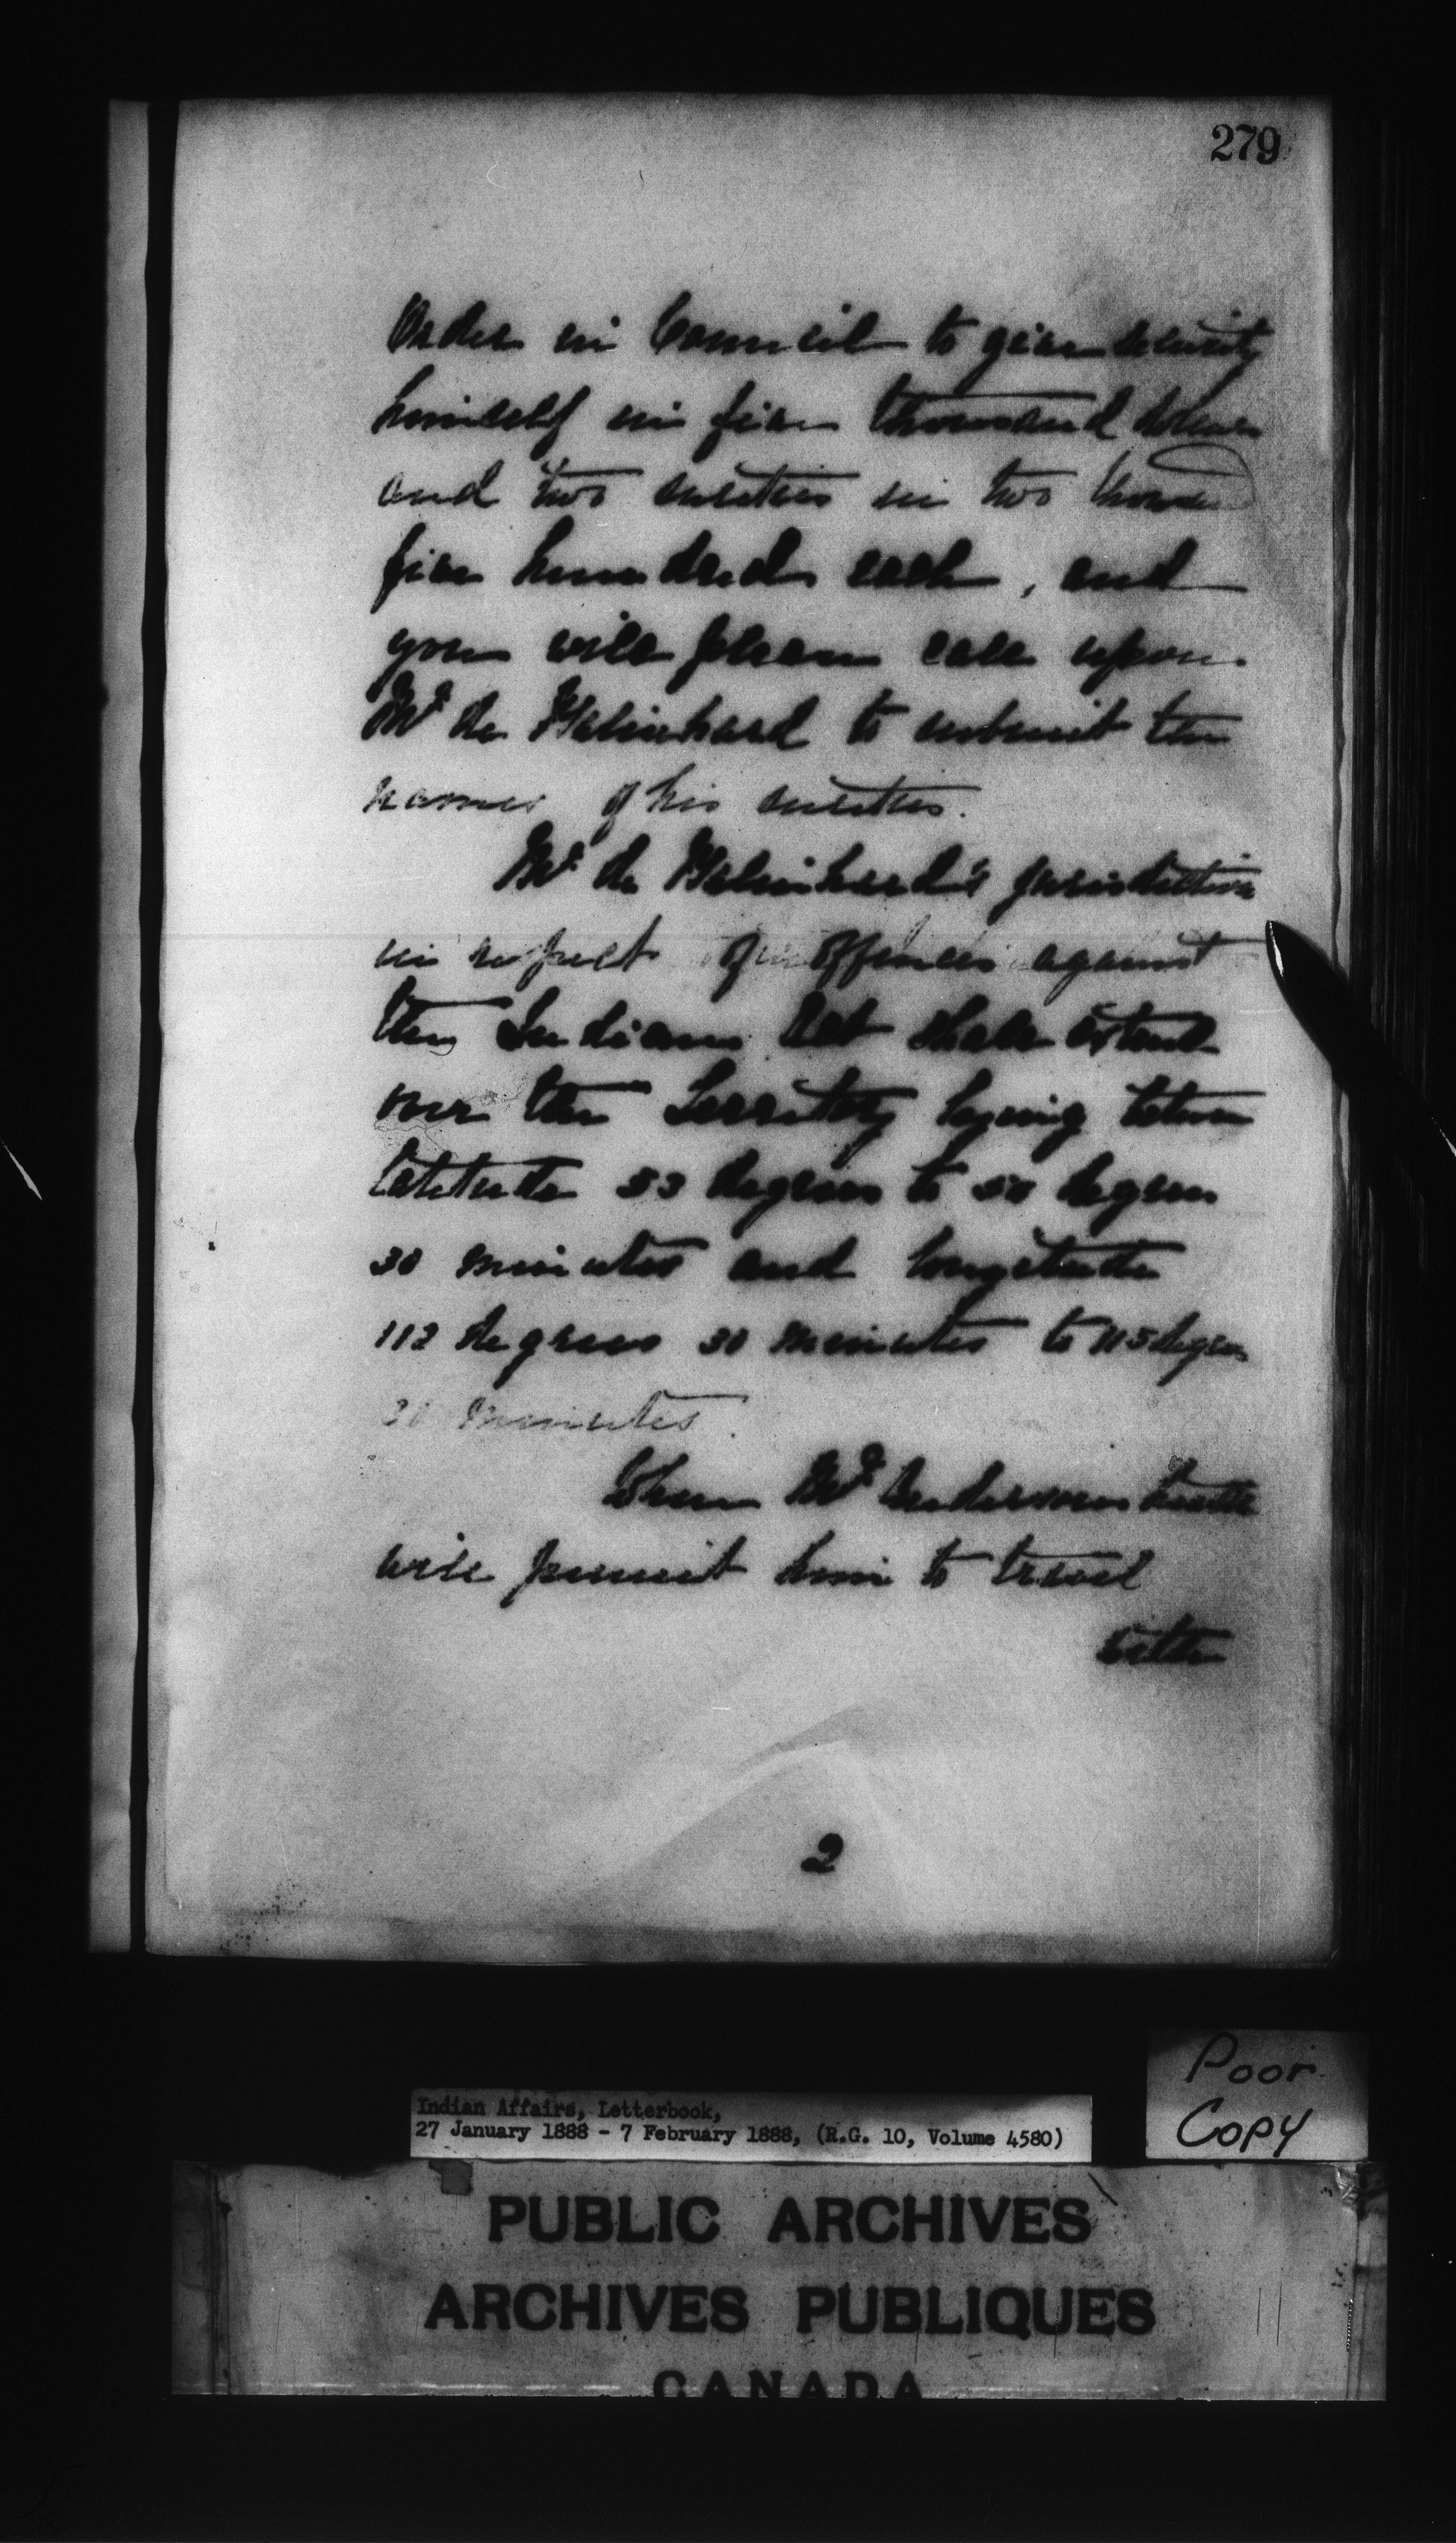 279
Order in Council to give security
himself in five thousand dollars
and two sureties in two thousand
five hundred each, and
you will please call upon
Mr de Balinhard to submit the
names of his sureties.
Mr de Balinhard's jurisdiction
in respect of offences against
the Indian Act shall extend
over the Territory lying between
latitude 53 degrees to degrees
30 minutes and longitude
112 degrees 30 minutes to 115 degrees
30 minutes.
When Mr Anderson's health
will permit him to travel
with
2
Poor
Copy
Indian Affairs, Letterbook,
27 January 1888 - 7 February 1888, (R.G. 10, Volume 4580)
PUBLIC ARCHIVES
ARCHIVES PUBLIQUES
CANADA